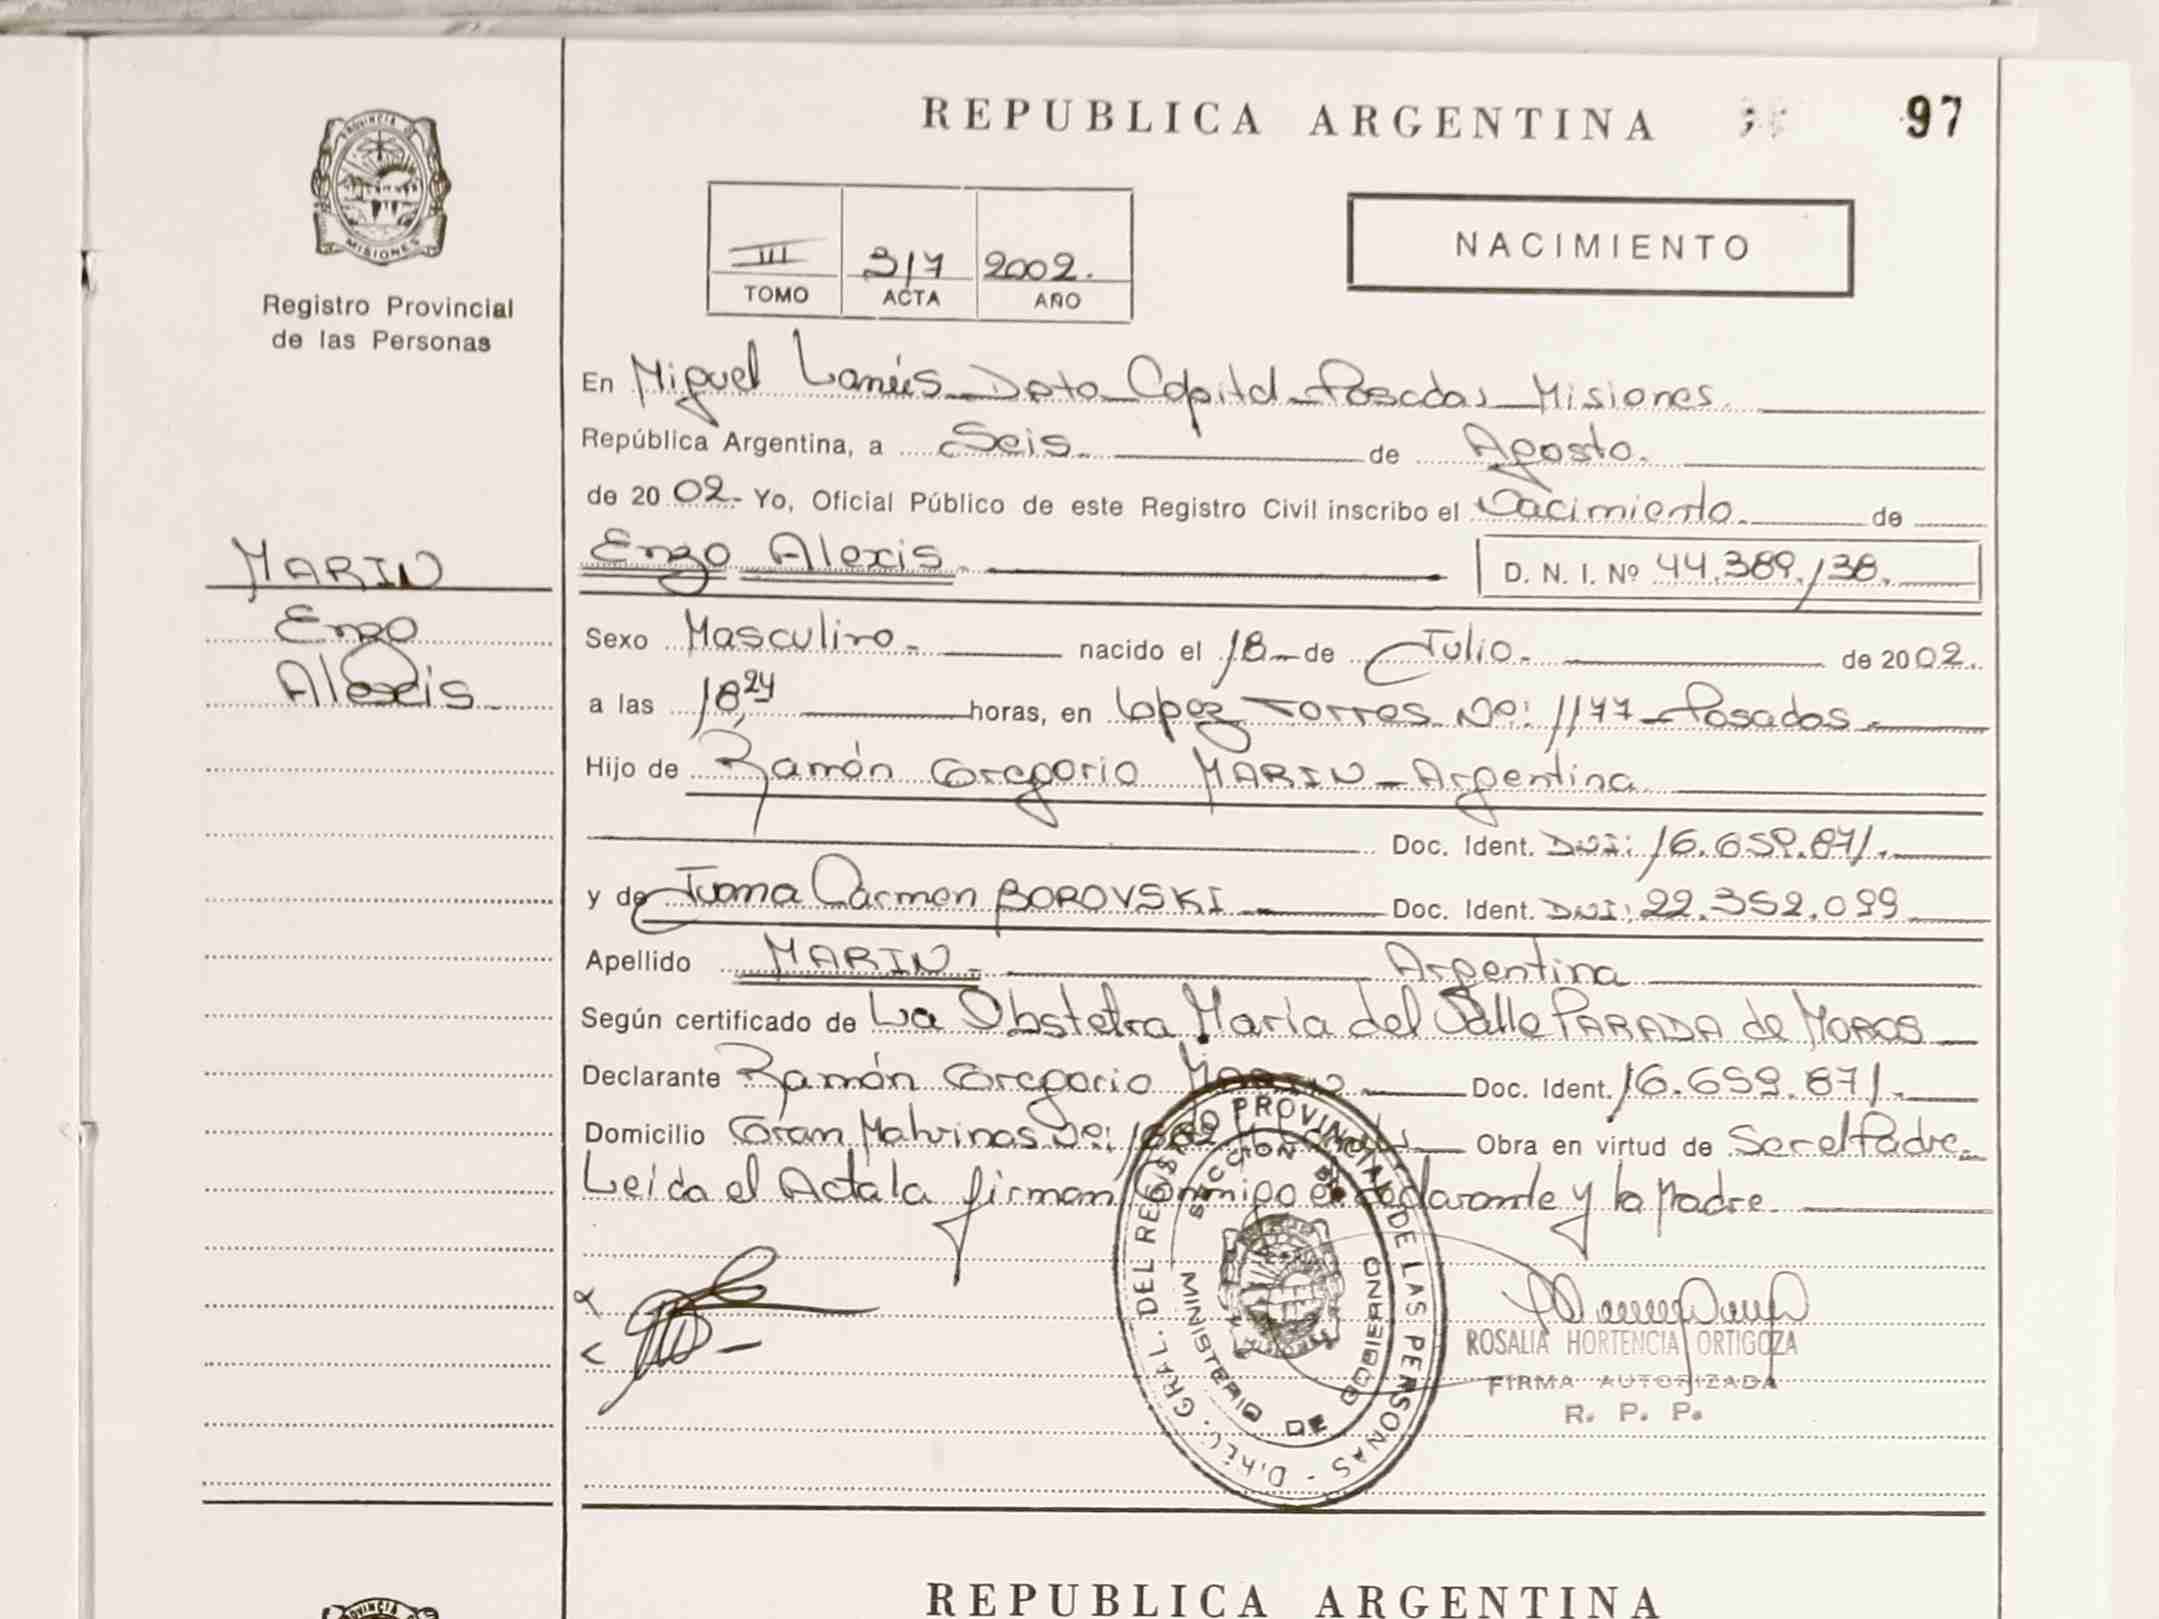 REPUBLICA ARGENTINA
97
PROVINCIA DE
MISIONES
Registro Provincial
de las Personas
III 317 2002.
TOMO ACTA AÑO
NACIMIENTO
En Miguel Lanús Dpto Capital Posadas Misiones.
República Argentina, a Seis de Agosto.
de 2002. Yo, Oficial Público de este Registro Civil inscribo el Nacimiento de
MARIN
Enzo
Alexis
Enzo Alexis D. N. I. Nº 44.389.138.
Sexo Masculino nacido el 18 de Julio de 2002.
a las 18,24 horas, en Lopez Torres Nº: 1177 Posadas
Hijo de Ramón Gregorio MARIN Argentina
Doc. Ident. DNI: 16.659.871.
y de Juana Carmen BOROVSKI Doc. Ident. DNI: 22.352.099
Apellido MARIN Argentina
Según certificado de La Obstetra María del Valle PARADA de MOROS
Declarante Ramón Gregorio MARIN Doc. Ident. 16.659.871.
Domicilio Gran Malvinas Nº: Obra en virtud de Ser el Padre
Leida el Acta la firman Conmigo el declarante y la Madre.
GRAL. DEL REGISTRO PROVINCIAL DE LAS PERSONAS
MINISTERIO DE GOBIERNO
ROSALIA HORTENCIA ORTIGOZA
FIRMA AUTORIZADA
R. P. P.
REPUBLICA ARGENTINA